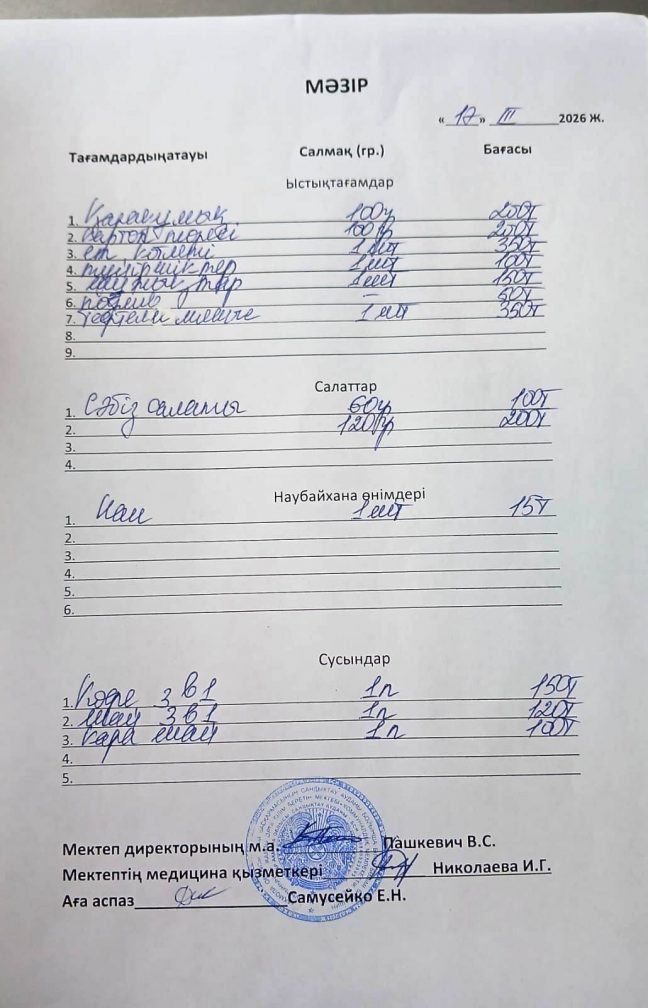 МӘЗІР
«17» III 2026 Ж.
Тағамдардыңатауы Салмақ (гр.) Бағасы
Ыстықтағамдар
1. Қарақұмық 100гр 200т
2. картоп пюресі 100гр 200т
3. ет котлеті 1 шт 350т
4. 1 шт 100т
5. 1 шт 150т
6. - 50т
7. тефтели 1 шт 350т
8.
9.
Салаттар
1. Сәбіз салаты 60гр 100т
2. 120гр 200т
3.
4.
Наубайхана өнімдері
1. Нан 1 шт 15т
2.
3.
4.
5.
6.
Сусындар
1. Кофе 3 в 1 1п 150т
2. шай 3 в 1 1п 120т
3. кара шай 1п 100т
4.
5.
Мектеп директорының м.а. Пашкевич В.С.
Мектептің медицина қызметкері Николаева И.Г.
Аға аспаз Самусейко Е.Н.